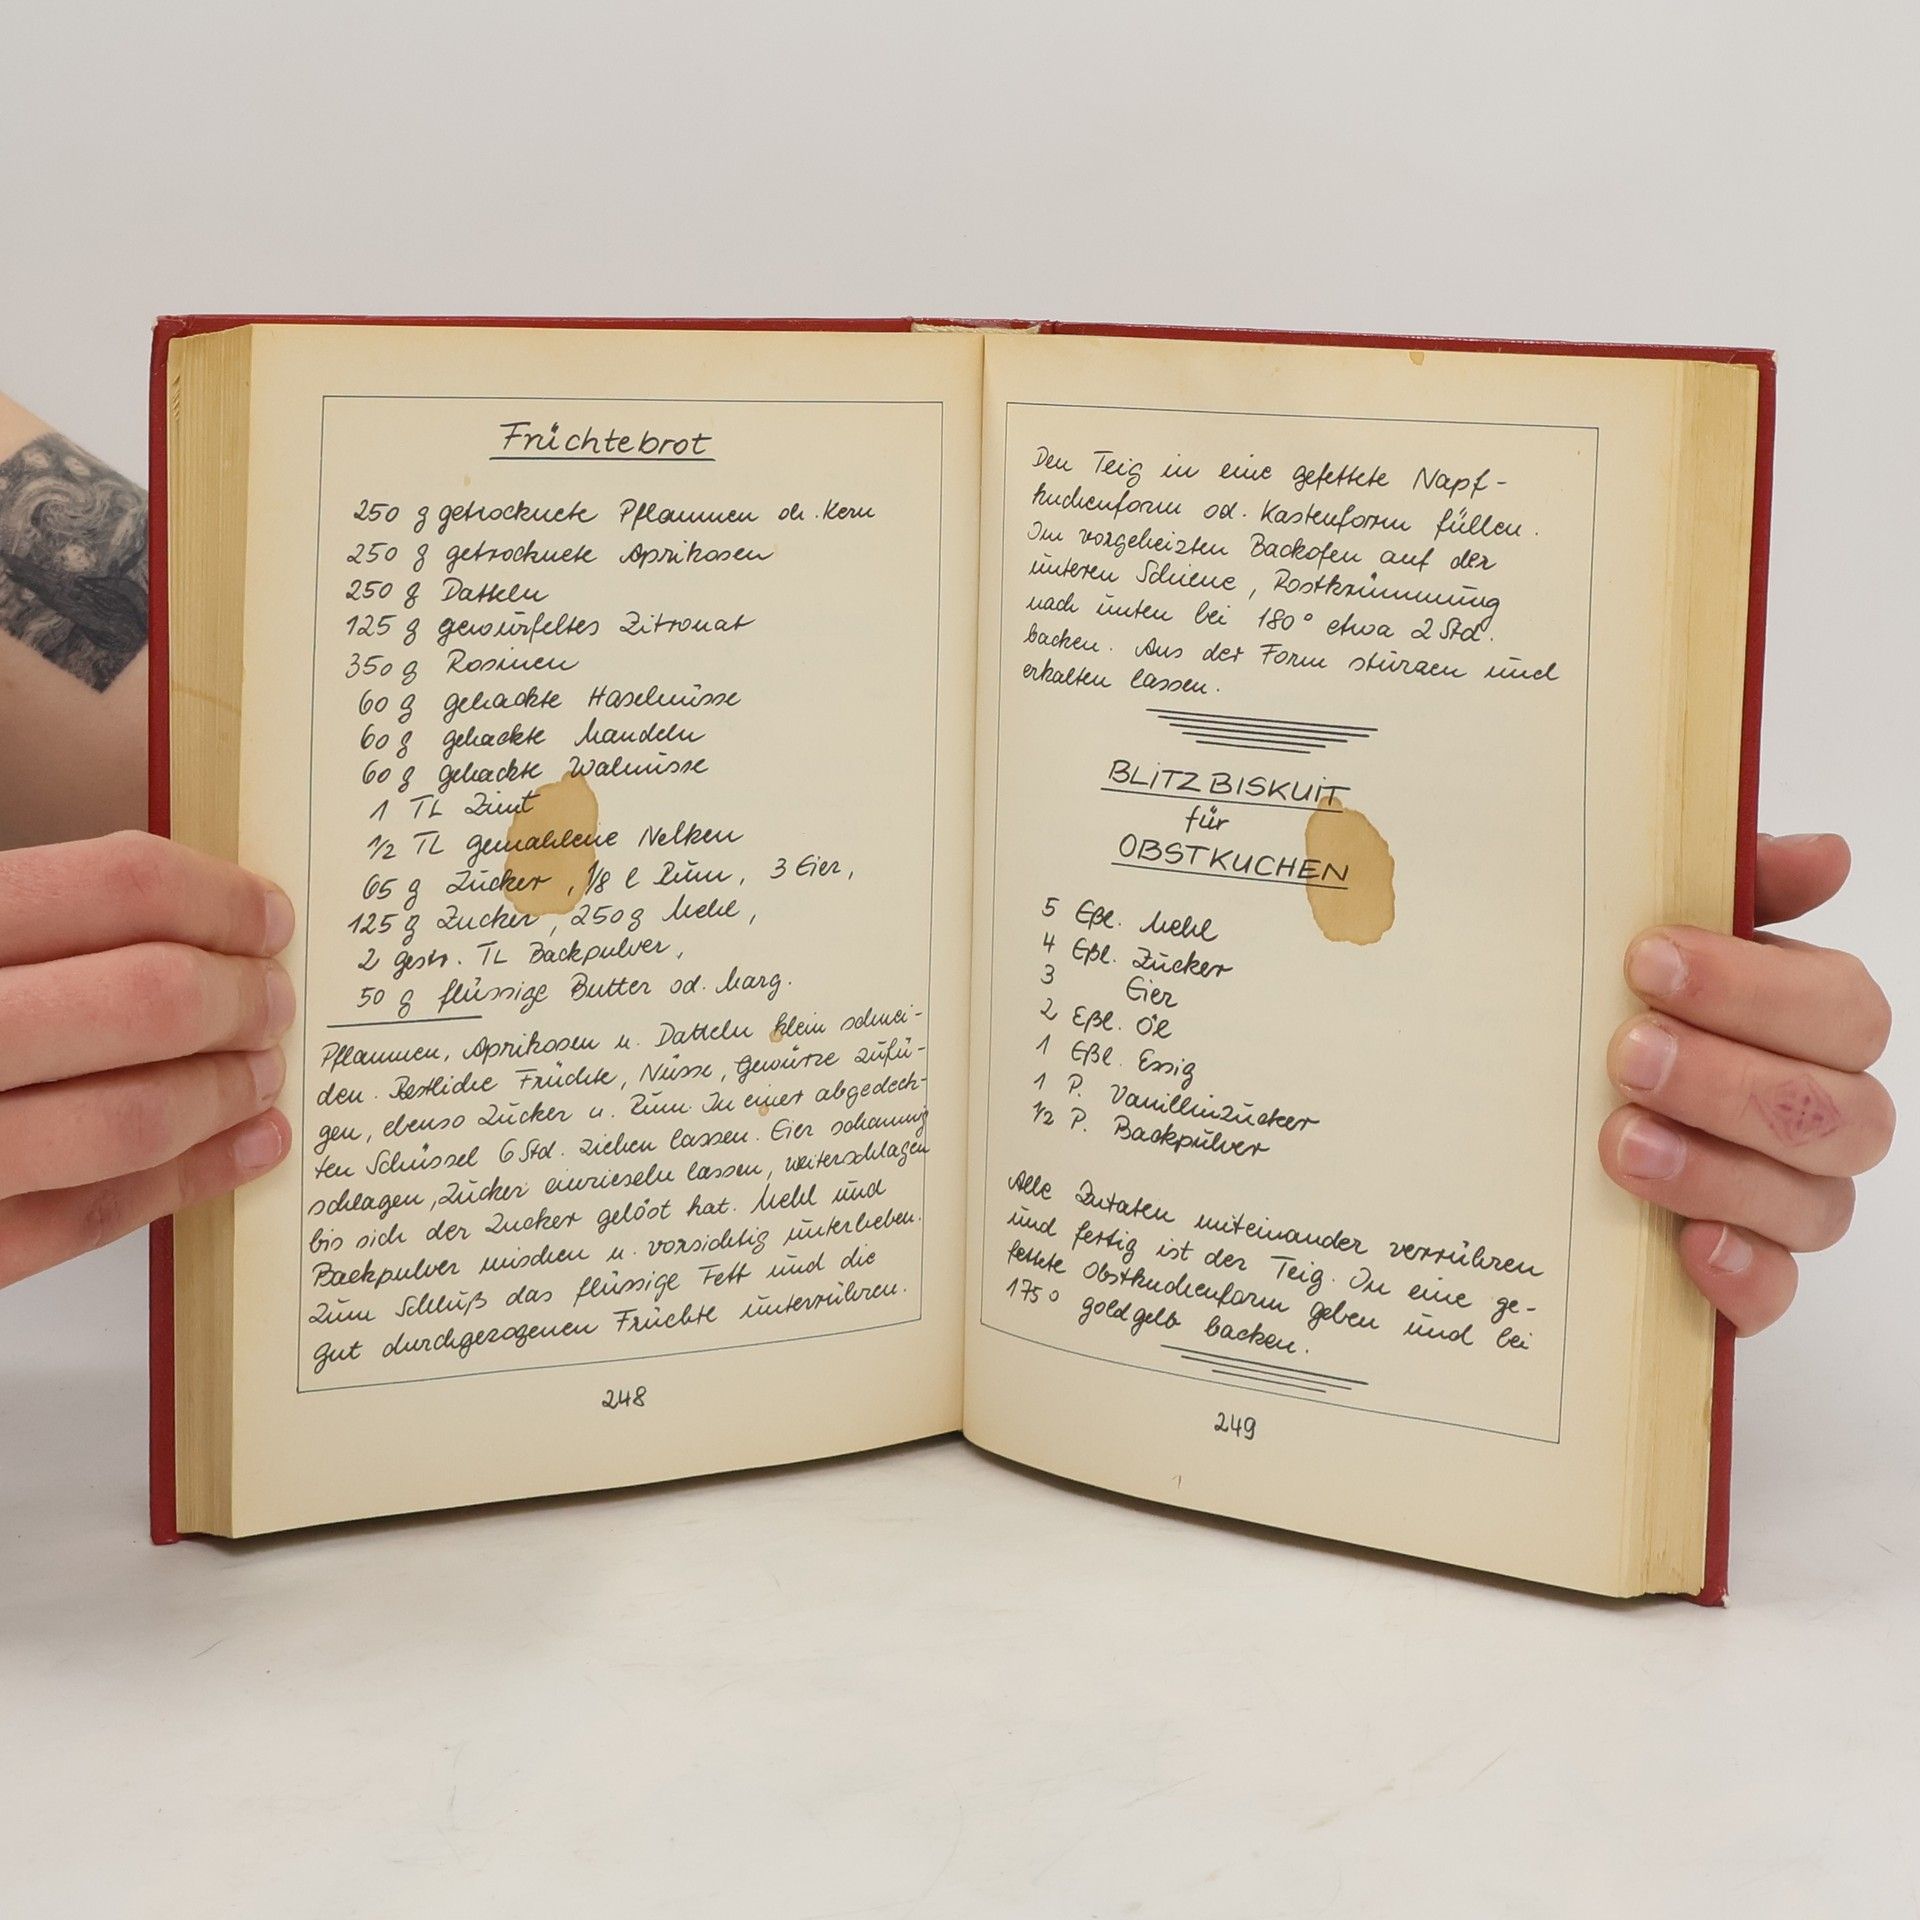 Früchtebrot
250 g getrocknete Pflaumen oh. Kern
250 g getrocknete Aprikosen
250 g Datteln
125 g gewürfeltes Zitronat
350 g Rosinen
60 g gehackte Haselnüsse
60 g gehackte Mandeln
60 g gehackte Walnüsse
1 TL Zimt
1/2 TL gemahlene Nelken
65 g Zucker, 1/8 l Rum, 3 Eier,
125 g Zucker, 250 g Mehl,
2 gestr. TL Backpulver,
50 g flüssige Butter od. Marg.
Pflaumen, Aprikosen u. Datteln klein schnei-
den. Restliche Früchte, Nüsse, Gewürze zufü-
gen, ebenso Zucker u. Rum. In einer abgedeck-
ten Schüssel 6 Std. ziehen lassen. Eier schaumig
schlagen, Zucker einrieseln lassen, weiterschlagen
bis sich der Zucker gelöst hat. Mehl und
Backpulver mischen u. vorsichtig unterheben.
Zum Schluß das flüssige Fett und die
gut durchgezogenen Früchte unterrühren.
248
Den Teig in eine gefettete Napf-
kuchenform od. Kastenform füllen.
Im vorgeheizten Backofen auf der
unteren Schiene, Rostkrümmung
nach unten bei 180° etwa 2 Std.
backen. Aus der Form stürzen und
erkalten lassen.
BLITZBISKUIT
für
OBSTKUCHEN
5 Eßl. Mehl
4 Eßl. Zucker
3 Eier
2 Eßl. Öl
1 Eßl. Essig
1 P. Vanillinzucker
1/2 P. Backpulver
Alle Zutaten miteinander verrühren
und fertig ist der Teig. In eine ge-
fettete Obstkuchenform geben und bei
175° goldgelb backen.
249